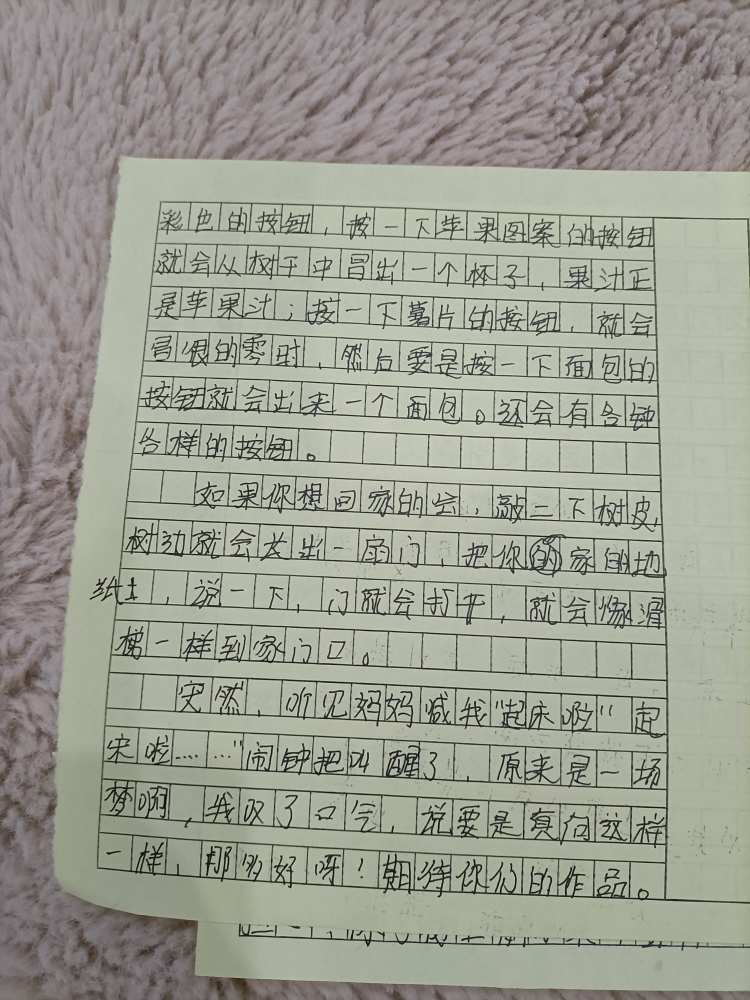 彩色的按钮，按一下苹果图案的按钮
就会从树干中冒出一个杯子，果汁正
是苹果汁；按一下薯片的按钮，就会
的零时，然后要是按一下面包的
按钮就会出来一个面包。还会有各钟
各样的按钮。
如果你想回家的会，敲二下树皮，
树动就会出一扇门，把你家的地
纸上，说一下，门就会打开，就会像滑
梯一样到家门口。
突然，听见妈妈喊我"起床啦"起
床啦……"闹钟把叫醒了，原来是一场
梦啊，我叹了口气，说要是真向这样
一样，那多好呀！期待你们的作品。